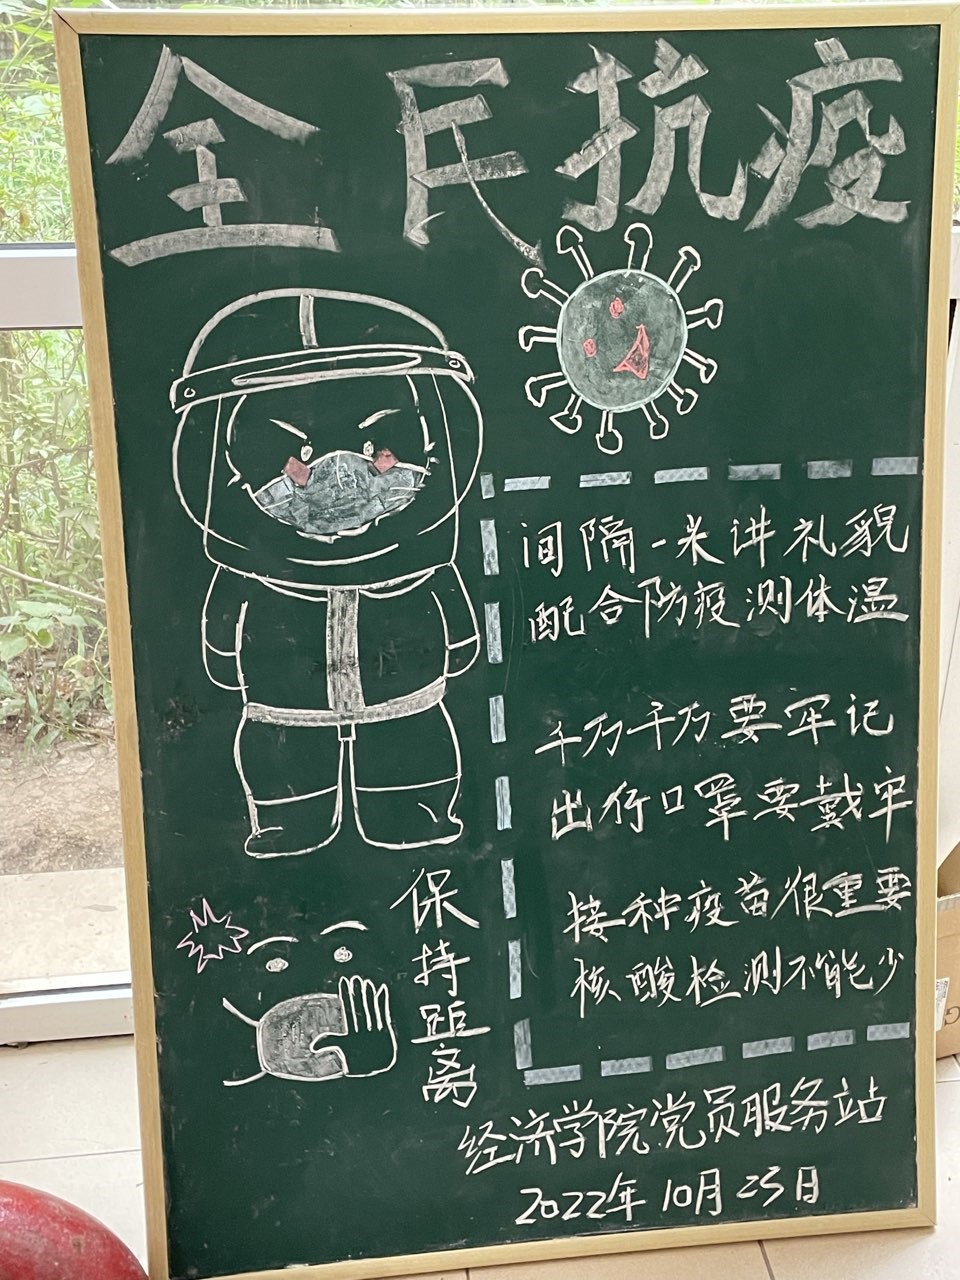 全民抗疫
间隔一米讲礼貌
配合防疫测体温
千万千万要牢记
出行口罩要戴牢
接种疫苗很重要
核酸检测不能少
保持距离
经济学院党员服务站
2022年10月25日